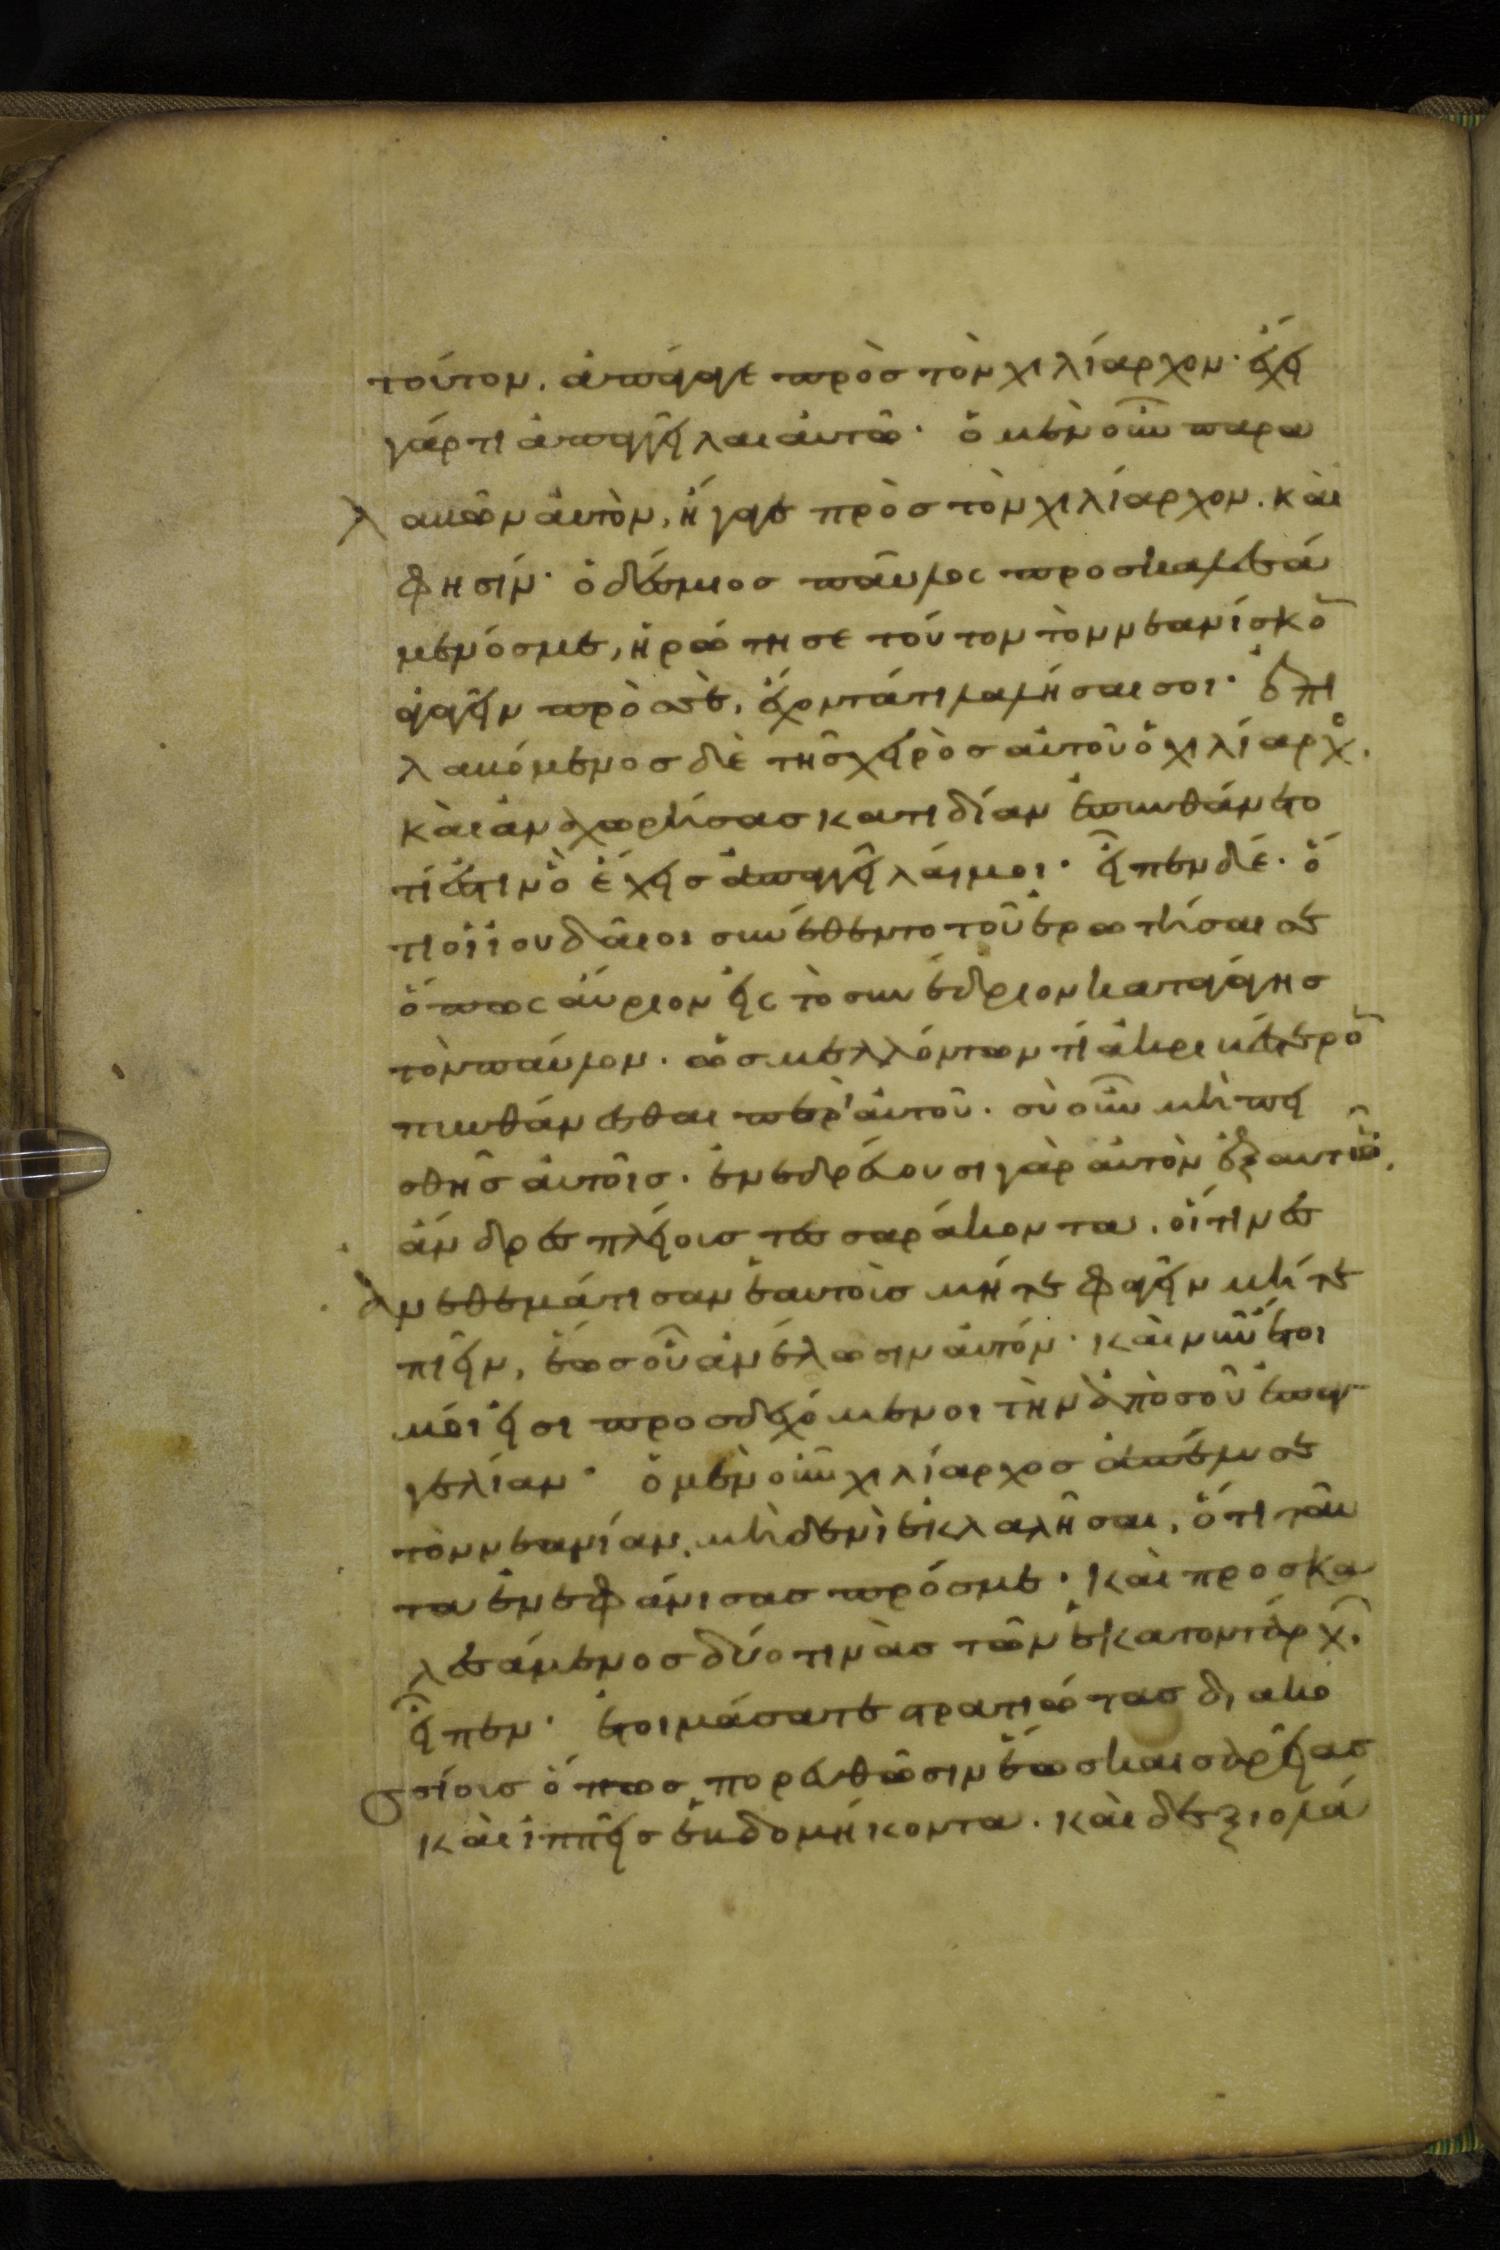 τούτον. ἀπάγαγε πρὸς τὸν χιλίαρχον· ἔχει
γάρ τι ἀπαγγεῖλαι αὐτῶ· ὁ μὲν οὖν παρα
λαβὼν αὐτὸν, ἤγαγε πρὸς τὸν χιλίαρχον. καὶ
φησίν· ὁ δέσμιος παῦλος προσκαλεσά
μενός με, ἠρώτησε τούτον τὸν νεανίσκο
ἀγαγεῖν πρὸς σὲ, ἔχοντά τι λαλῆσαι σοι· ἐπι
λαβόμενος δὲ τῆς χειρὸς αὐτοῦ ὁ χιλίαρχο.
καὶ ἀναχωρήσας κατιδίαν ἐπυνθάνετο
τί ἐστιν ὃ ἔχεις ἀπαγγεῖλαί μοι· εἶπεν δέ· ὅ
τι οἱ ἰουδαῖοι συνέθεντο τοῦ ἐρωτήσαι σε
ὅπως αὔριον εἰς τὸ συνέδριον καταγάγης
τὸν παύλον. ὡς μελλόντων τί ἀκριβέστερο
πυνθάνεσθαι περὶ αὐτοῦ. σὺ οὖν μὴ πει
σθῆς αὐτοῖς. ἐνεδρεύουσι γὰρ αὐτὸν ἐξ αυτῶ,
ἄνδρες πλείους τεσσαράκοντα. οἵτινες
ἀνεθεμάτισαν ἑαυτοὺς μήτε φαγεῖν μήτε
πιεῖν, ἕως οὗ ἀνέλωσιν αὐτόν· καὶ νῦν ἕτοι
μοί εἰσι προσδεχόμενοι τὴν ἀπὸ σοῦ ἐπαγ
γελίαν· ὁ μὲν οὖν χιλίαρχος ἀπέλυσε
τὸν νεανίαν, μηδενὶ ἐκλαλῆσαι, ὅτι ταῦ
τα ἐνεφάνισας πρός με. καὶ προσκα
λεσάμενος δύο τινὰς τῶν ἑκατοντάρχ.
εἶπεν· ἑτοιμάσατε στρατιώτας διακο
σίους ὅπως πορευθῶσιν ἕως καισαρείας
καὶ ἱππεῖς ἑβδομήκοντα. καὶ δεξιολά